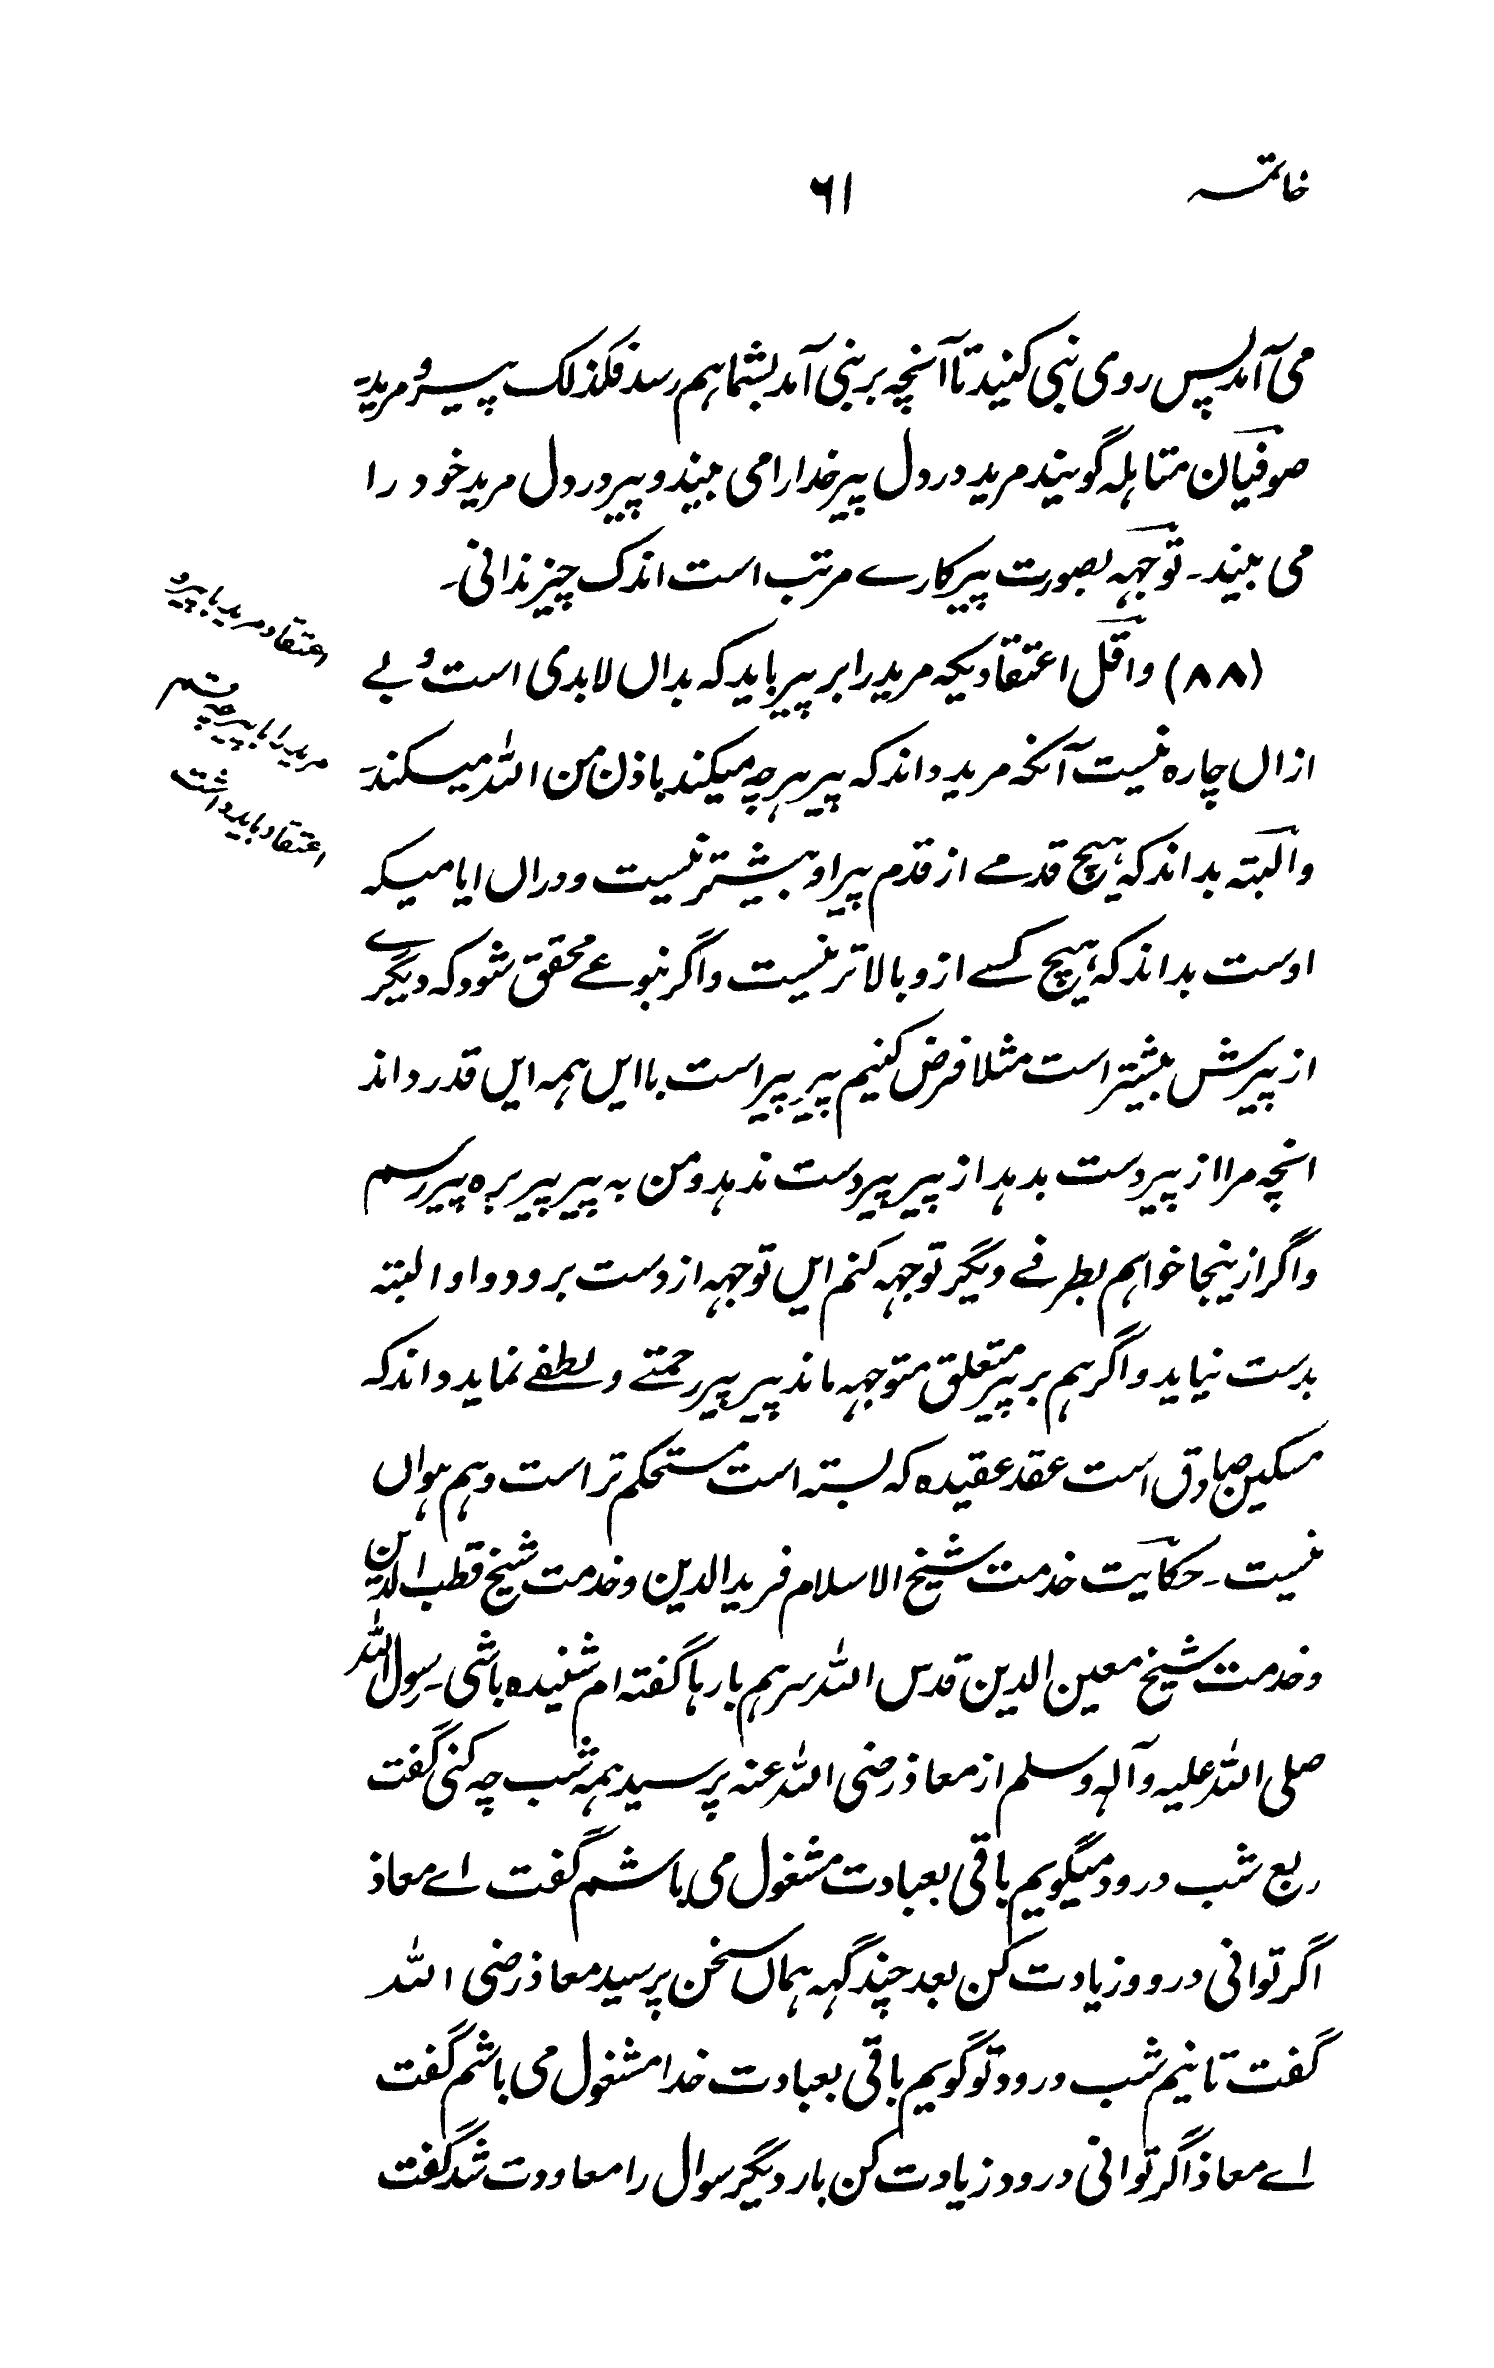 خاتمہ
٦١
می آمد پس روی نبی کنید تا آنچہ بر نبی آمد بشما ہم رسد فکذلک پیر و مرید۔
صوفیان متاہلہ گویند مرید در دل پیر خدا را می بیند و پیر در دل مرید خود را
می بیند۔ توجہہ بصورت پیر کارے مرتب است اندک چیز ندانی۔
(۸۸) واقل اعتقادیکہ مرید را بر پیر باید کہ بداں لابدی است و بے
ازاں چارہ نیست آنکہ مرید داند کہ پیر ہرچہ میکند باذن من اللہ میکند۔
والبتہ بداند کہ ہیچ قدمے از قدم پیر او بیشتر نیست و دراں ایامیکہ
اوست بداند کہ ہیچ کسے ازو بالاتر نیست و اگر بنوعے محقق شود کہ دیگرے
از پیرش بیشتر است مثلا فرض کنیم پیرِ پیر است با ایں ہمہ ایں قدر داند
انچہ مرا از پیر دست بدہد از پیر پیر دست ندہد و من بہ پیر پیر برہ پیر رسم
و اگر ازینجا خواہم بطرفے دیگر توجہہ کنم ایں توجہہ از دست برود و او البتہ
بدست نیاید و اگر ہم بر پیر متعلق متوجہہ ماند پیر پیر رحمتے و لطفے نماید داند کہ
مسکین صادق است عقد عقیدہ کہ بستہ است مستحکم تر است و ہم ہواں
نیست۔ حکایت خدمت شیخ الاسلام فرید الدین و خدمت شیخ قطب الدین
و خدمت شیخ معین الدین قدس اللہ سرہم بارہا گفتہ ام شنیدہ باشی۔ رسول اللہ
صلی اللہ علیہ وآلہ وسلم از معاذ رضی اللہ عنہ پرسید ہمہ شب چہ کنی گفت
ربع شب درود میگویم باقی بعبادت مشغول می باشم گفت اے معاذ
اگر توانی درود زیادت کن بعد چند گہہ ہماں سخن پرسید معاذ رضی اللہ
گفت تا نیم شب درود تو گویم باقی بعبادت خدا مشغول می باشم گفت
اے معاذ اگر توانی درود زیادت کن بار دیگر سوال را معاودت شد گفت
اعتقاد مرید با پیر و
مرید را با پیر چہ قسم
اعتقاد باید داشت